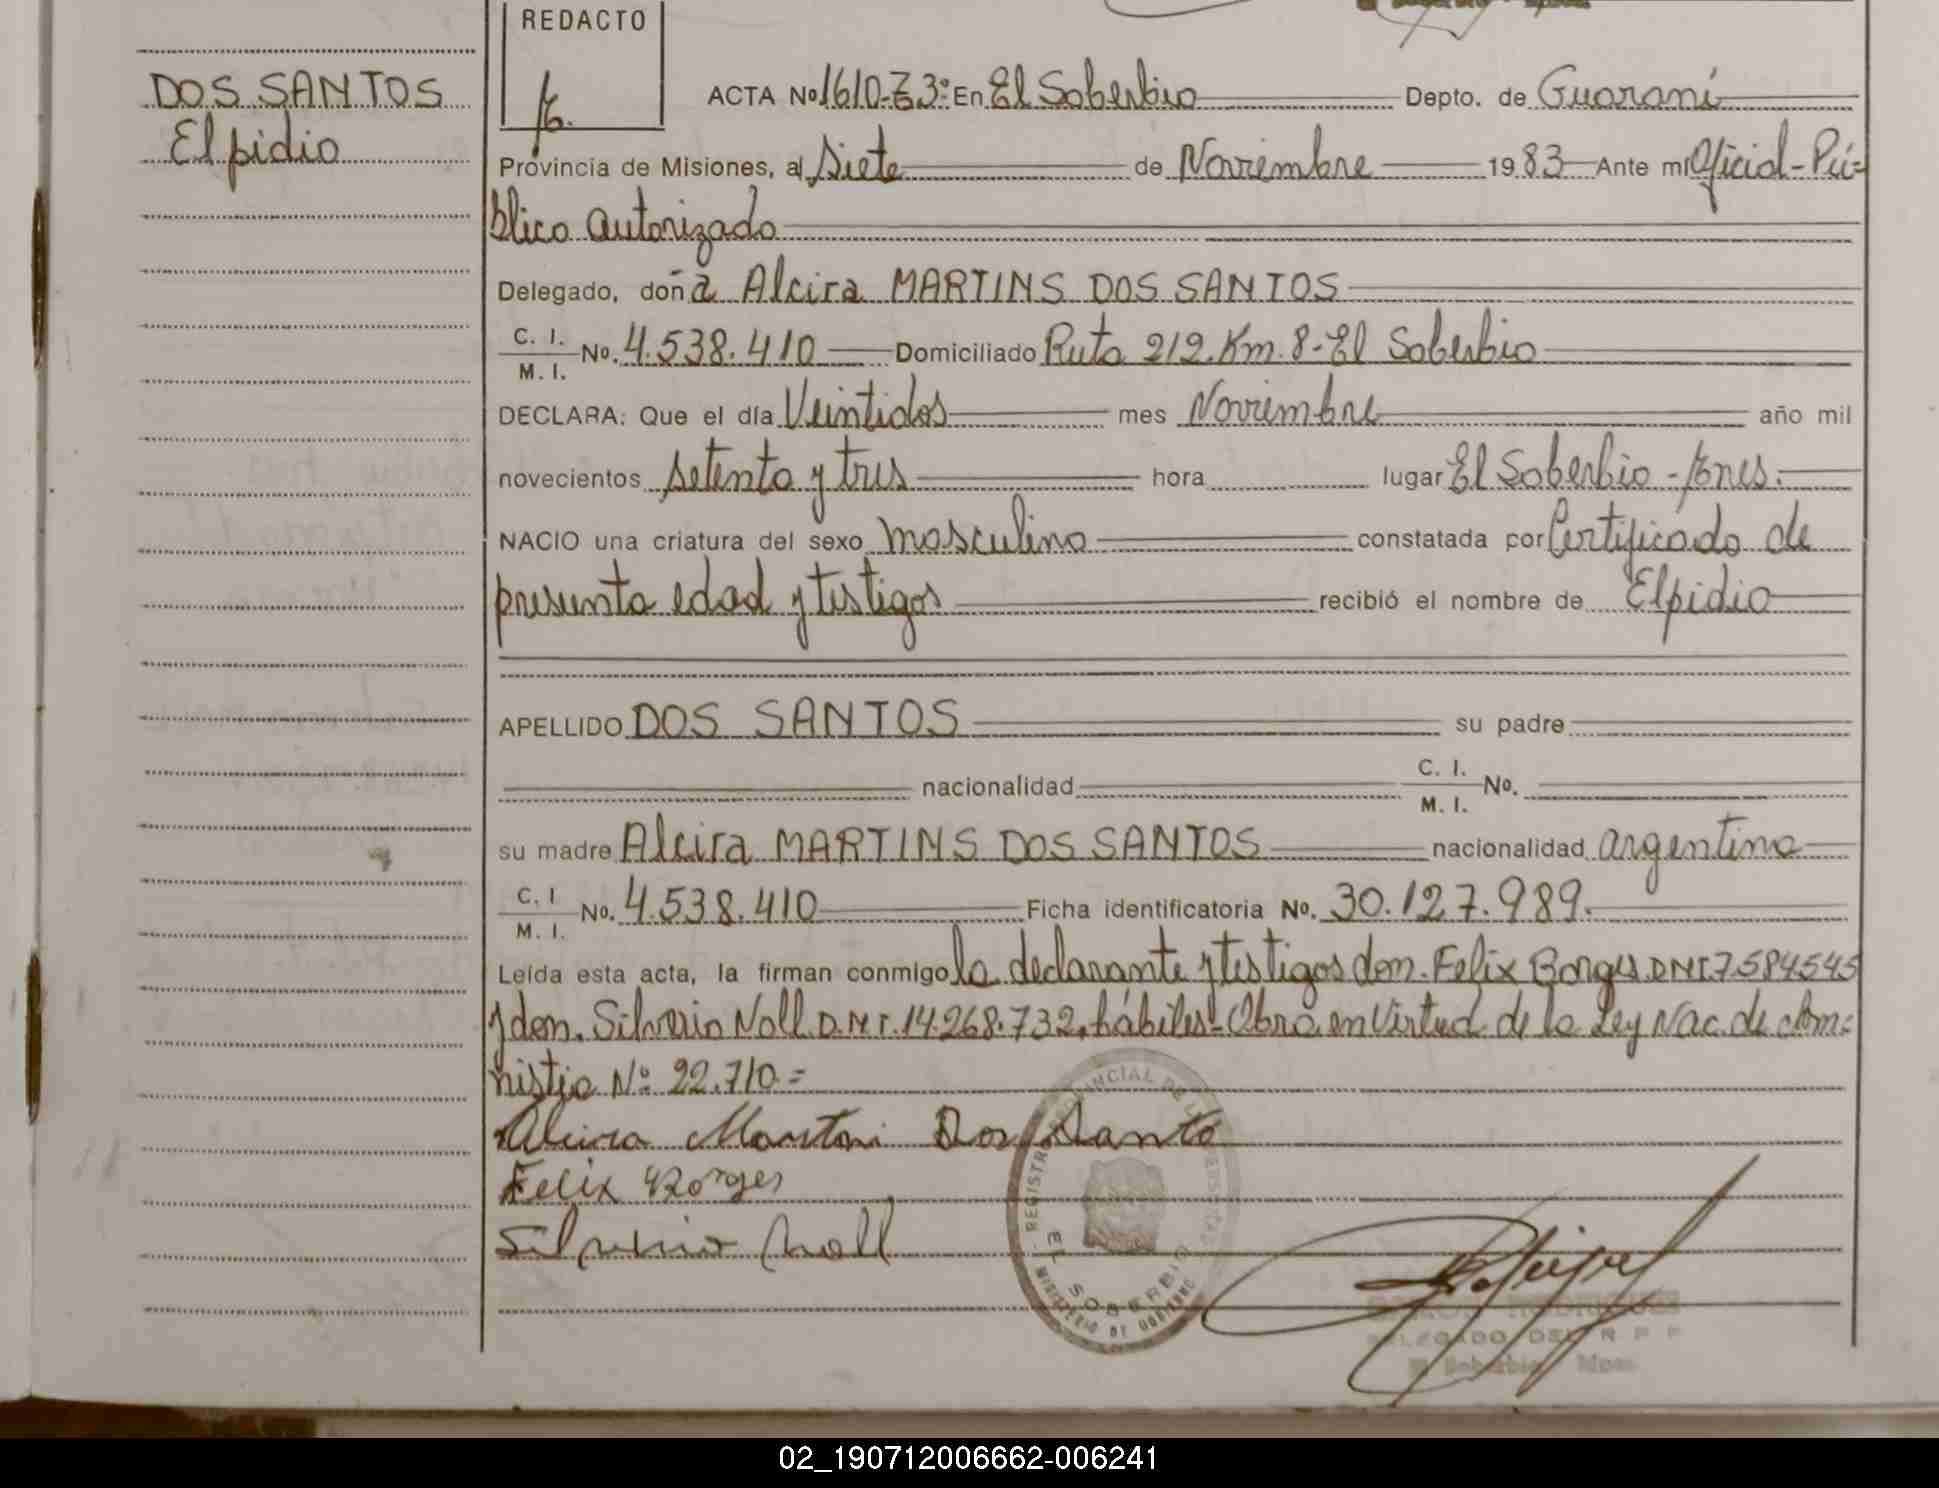 REDACTO
DOS SANTOS
Elpidio
ACTA Nº 1610-T3º En El Soberbio Depto. de Guaraní
Provincia de Misiones, al Siete de Noviembre 1983 Ante mi Oficial-Pú=
blico autorizado
Delegado, doña Alcira MARTINS DOS SANTOS
C. I.
M. I. No. 4.538.410 Domiciliado Ruta 212.Km.8-El Soberbio
DECLARA: Que el día Veintidos mes Noviembre año mil
novecientos setenta y tres hora lugar El Soberbio - Mnes.
NACIO una criatura del sexo masculino constatada por Certificado de
presunta edad y testigos recibió el nombre de Elpidio
APELLIDO DOS SANTOS su padre
nacionalidad C. I. M. I. No.
su madre Alcira MARTINS DOS SANTOS nacionalidad argentina
C. I.
M. I. No. 4.538.410 Ficha identificatoria No. 30.127.989.
Leída esta acta, la firman conmigo la declarante y testigos don. Felix Borges D.N.I. 7584545
y don. Silverio Noll D.N.I. 14.268.732, hábiles - Obra en Virtud de la Ley Nac. de Am=
nistia Nº 22.710=
Alcira Martin Dos Santo
Felix Borges
Silverio Noll
REGISTRO PROVINCIAL DE LAS PERSONAS
EL SOBERBIO
MINISTERIO DE GOBIERNO
RODRIGUEZ
DELEGADO DEL R P P
El Soberbio Mnes.
02_190712006662-006241